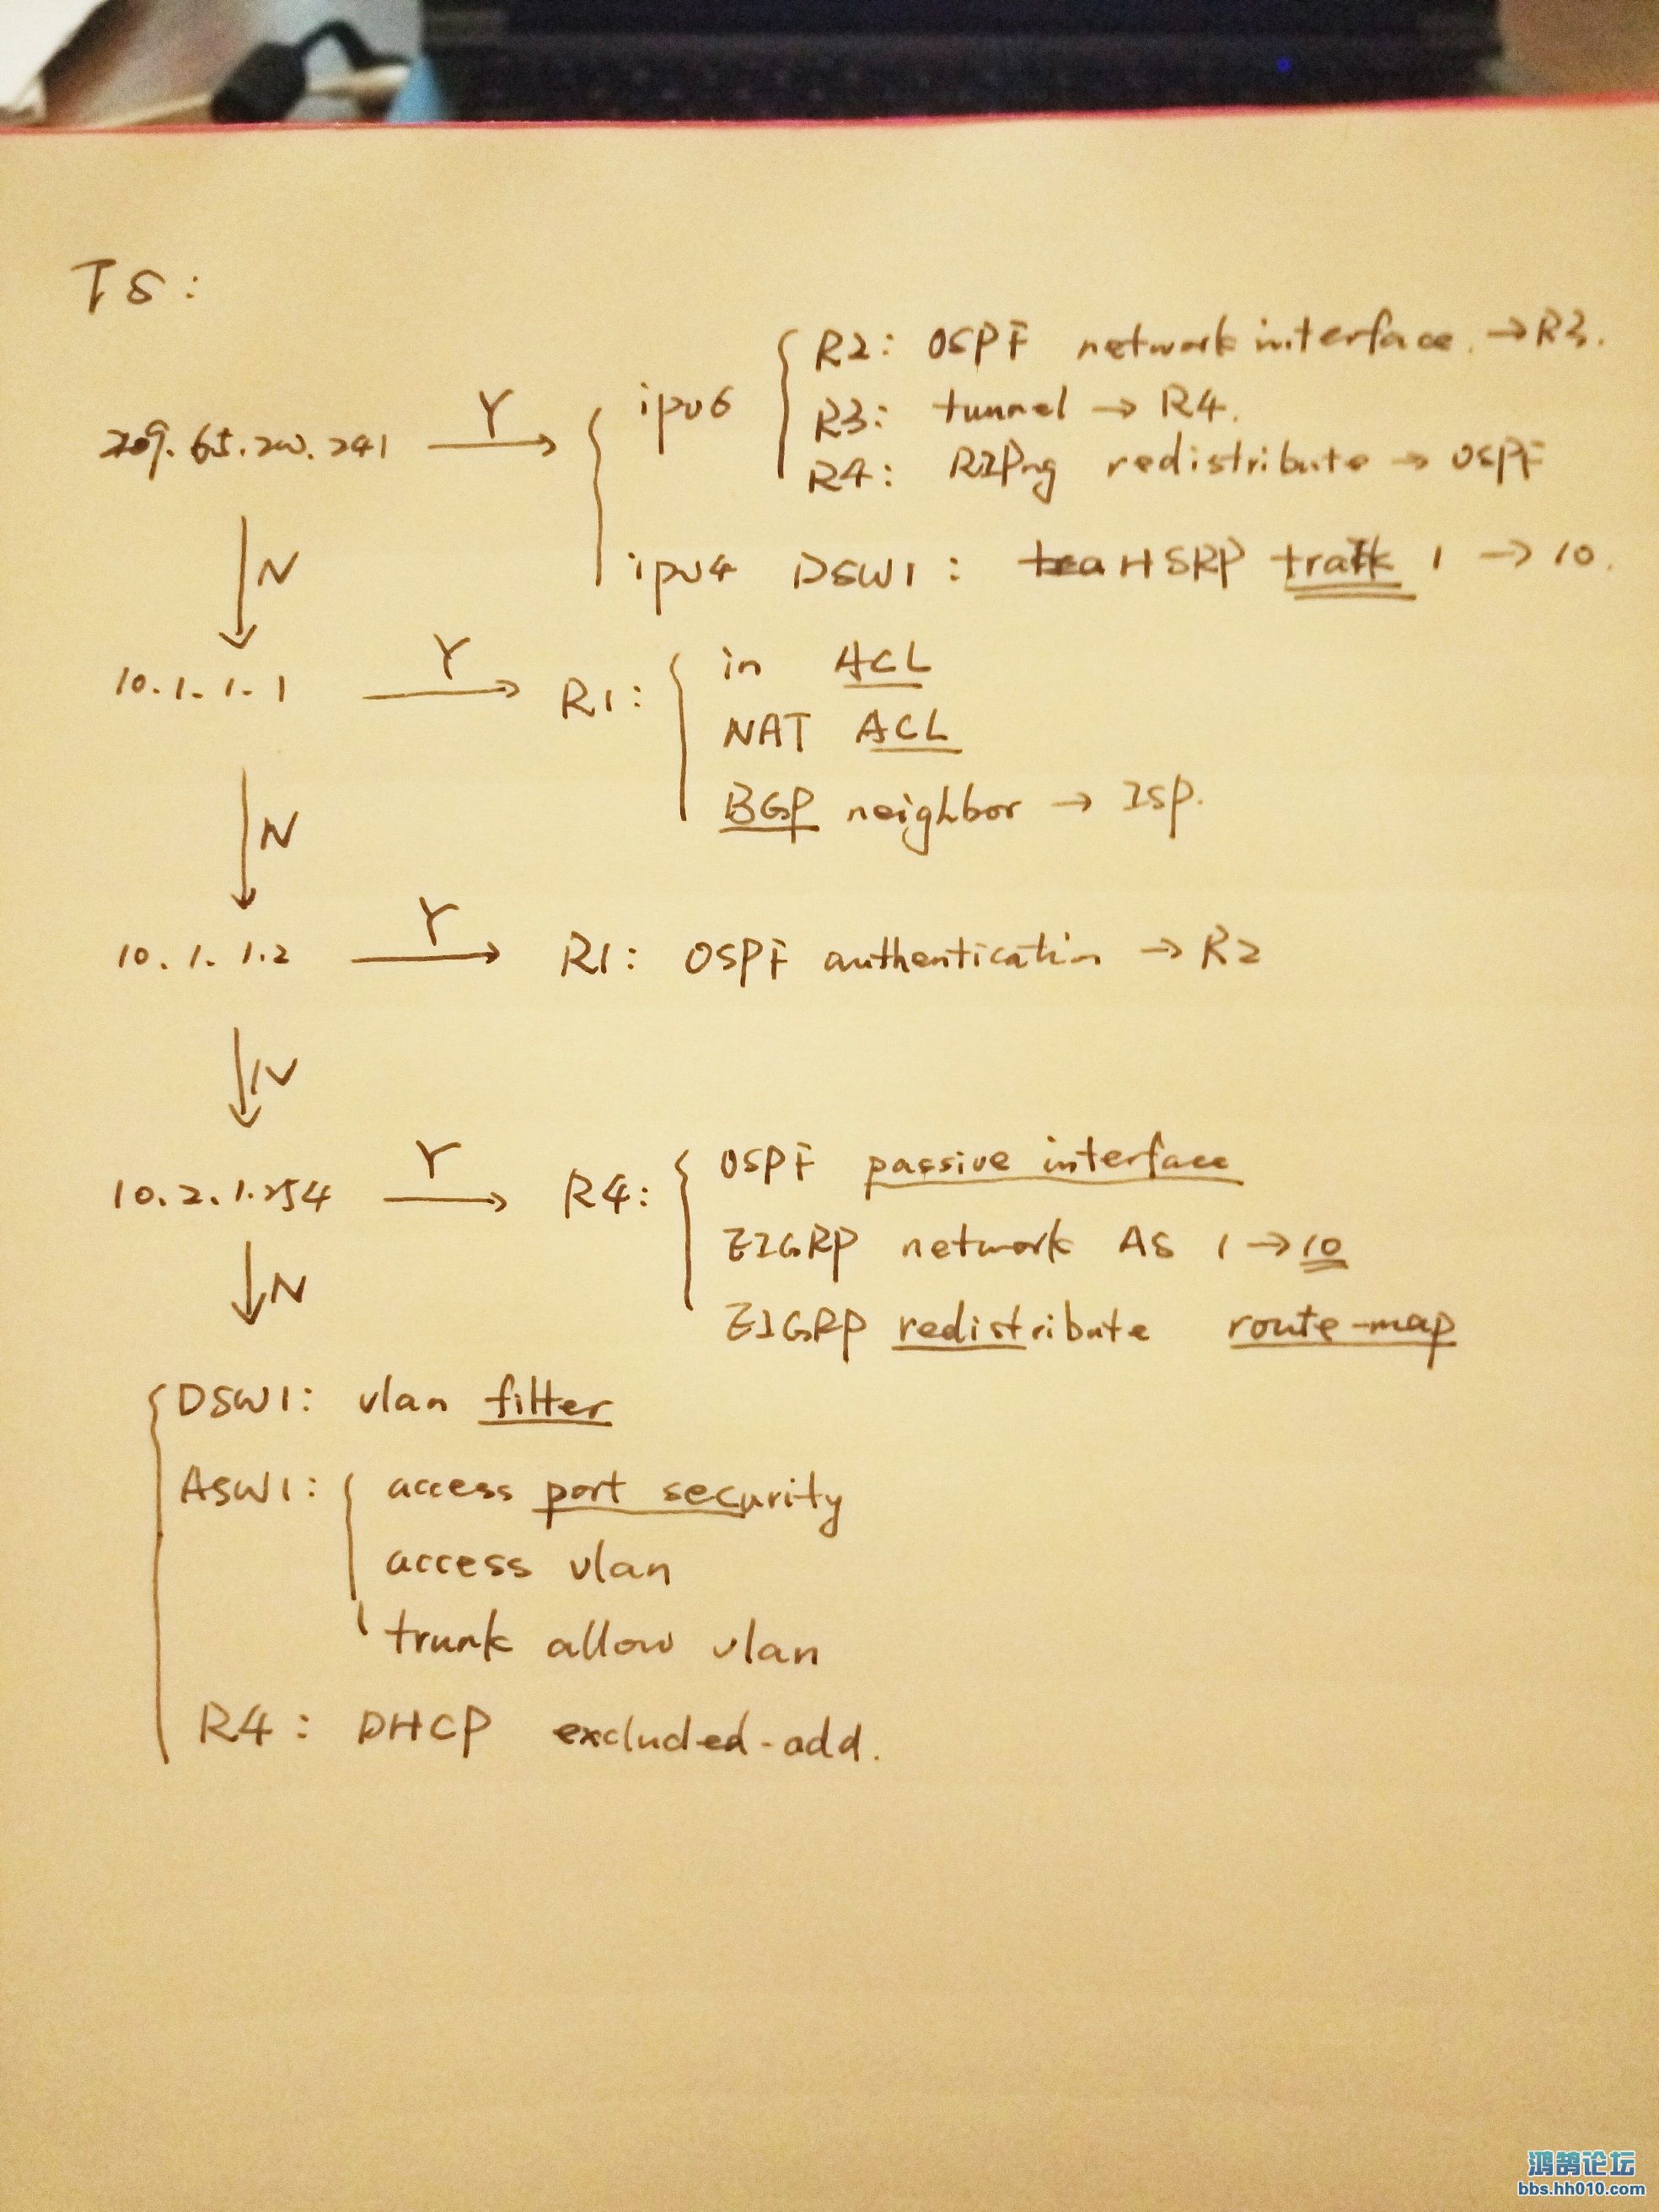 TS:
209.65.200.241 Y → ipv6 R2: OSPF network interface. → R3.
R3: tunnel → R4.
R4: RIPng redistribute → OSPF
N ipv4 DSW1: HSRP track 1 → 10.
10.1.1.1 Y → R1: in ACL
NAT ACL
N BGP neighbor → ISP.
10.1.1.2 Y → R1: OSPF authentication → R2
N
10.2.1.254 Y → R4: OSPF passive interface
EIGRP network AS 1 → 10
N EIGRP redistribute route-map
DSW1: vlan filter
ASW1: access port security
access vlan
trunk allow vlan
R4: DHCP excluded-add.
鸿鹄论坛
bbs.hh010.com